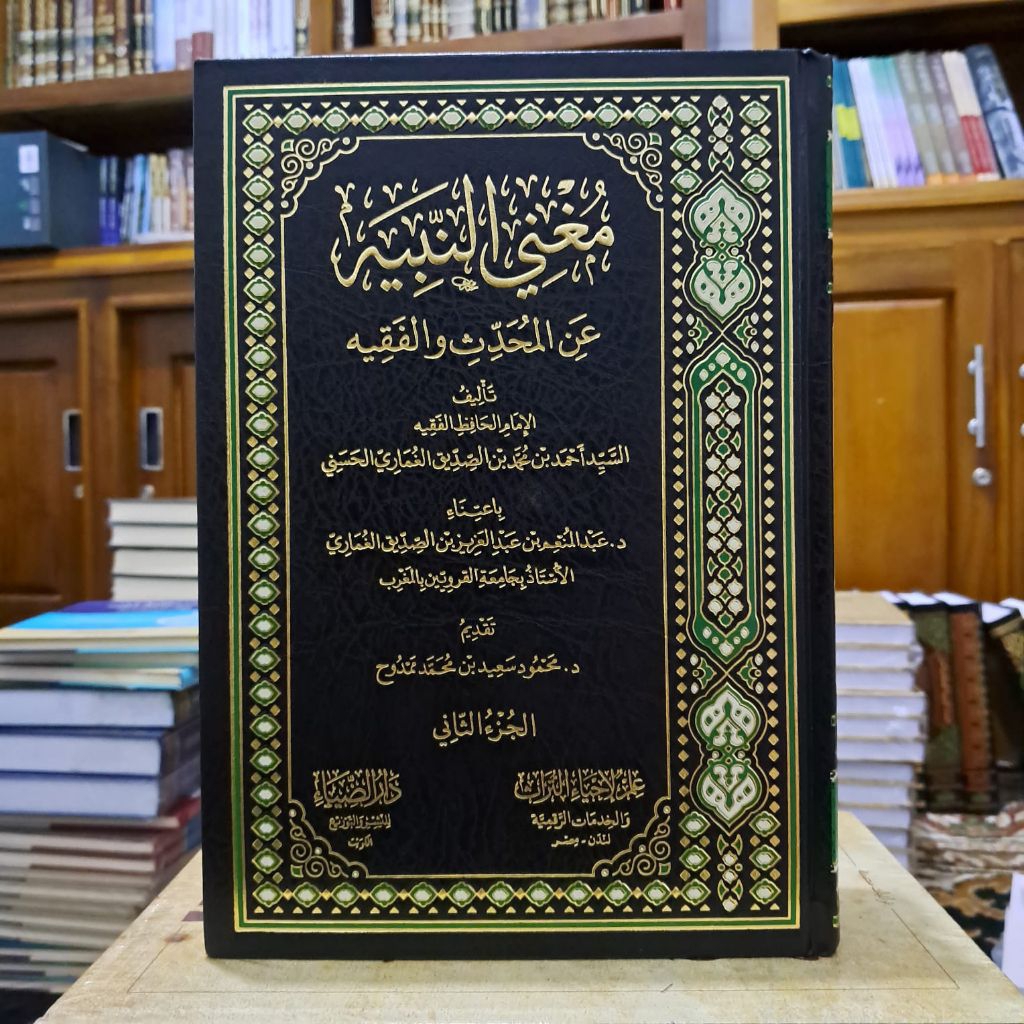 مُغْنِي النَّبِيهِ
عَنِ المُحَدِّثِ وَالفَقِيهِ
تَأْلِيفُ
الإِمَامِ الحَافِظِ الفَقِيهِ
السَّيِّد أَحْمَد بْن مُحَمَّد بْن الصِّدِّيق الغُمَارِي الحَسَنِي
بِاعْتِنَاءِ
د. عَبْد المُنْعِم بْن عَبْد العَزِيز بْن الصِّدِّيق الغُمَارِيّ
الأُسْتَاذُ بِجَامِعَةِ القَرَوِيِّين بِالمَغْرِب
تَقْدِيمُ
د. مَحْمُود سَعِيد بْن مُحَمَّد مَمْدُوح
الجُزْءُ الثَّانِي
عِلْم لإِحْيَاءِ التُّرَاثِ
وَالخِدمَات الرَّقميَّة
لَنْدَن - مِصر
دَارُ الضِّيَاءِ
لِلنَّشْرِ وَالتَّوْزِيْعِ
الكويت